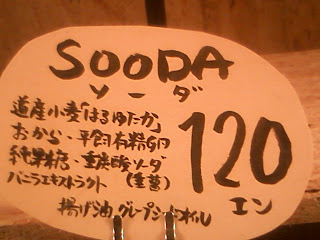 SOODA
ソーダ
道産小麦「はるゆたか」
おから・平飼有精卵
純黒糖・重炭酸ソーダ
バニラエキストラクト
120
エン
揚げ油 グレープシードオイル